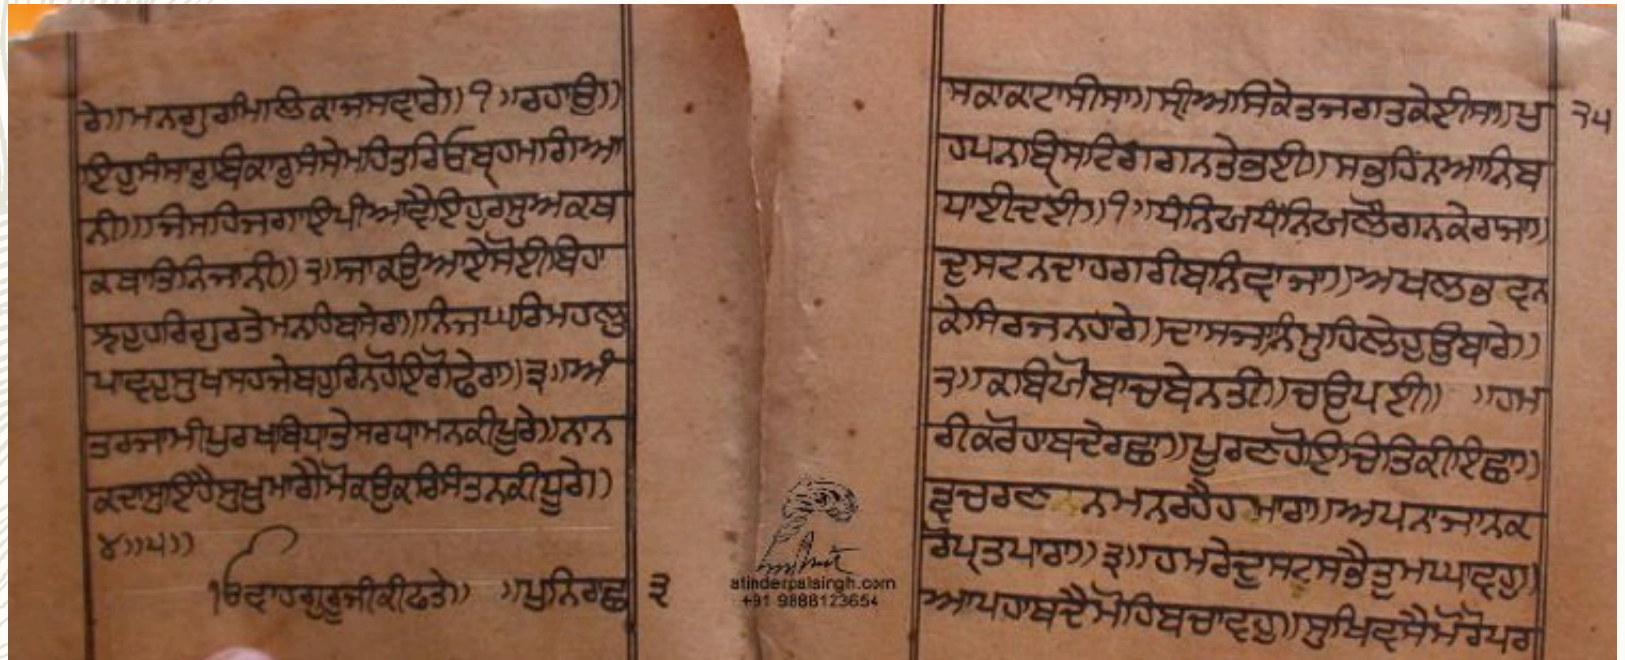 ਰੇ॥ਮਨਗੁਰਿਮਿਲਿਕਾਜਸਵਾਰੇ॥੧॥ਰਹਾਉ॥
ਇਹੁਸੰਸਾਰੁਬਿਕਾਰੁਸੰਸੇਮਹਿਤਰਿਓਬ੍ਰਹਮਗਿਆ
ਨੀ॥ਜਿਸਹਿਜਗਾਇਪੀਆਵੈਇਹੁਰਸੁਅਕਥ
ਕਥਾਤਿਨਿਜਾਨੀ॥੨॥ਜਾਕਉਆਏਸੋਈਬਿਹਾ
ਝਹੁਹਰਿਗੁਰਤੇਮਨਹਿਬਸੇਰਾ॥ਨਿਜਘਰਿਮਹਲੁ
ਪਾਵਹੁਸੁਖਸਹਜੇਬਹੁਰਿਨਹੋਇਗੋਫੇਰਾ॥੩॥ਅੰ
ਤਰਜਾਮੀਪੁਰਖਬਿਧਾਤੇਸਰਧਾਮਨਕੀਪੂਰੇ॥ਨਾਨ
ਕਦਾਸੁਇਹੈਸੁਖੁਮਾਗੈਮੋਕਉਕਰਿਸੰਤਨਕੀਧੂਰੇ॥
੪॥੫॥
੧ਓਵਾਹਗੁਰੂਜੀਕੀਫਤੇ॥ ॥ਪੁਨਿਰਾਛ ੩
atinderpalsingh.com
+91 9888123654
ਸਕਾਕਾਟਾਸੀਸਾ॥ਸ੍ਰੀਅਸਿਕੇਤਜਗਤਕੇਈਸਾ॥ਪੁ ੨੫
ਹਪਨਬ੍ਰਿਸਟਿਗਗਨਤੇਭਈ॥ਸਭਹਿਨਆਨਿਬ
ਧਾਈਦਈ॥੧॥ਧੰਨਿਖਧੰਨਿਖਲੋਗਨਕੇਰਾਜਾ॥
ਦੁਸਟਨਦਾਹਗਰੀਬਨਿਵਾਜਾ॥ਅਖਲਭਵਨ
ਕੇਸਿਰਜਨਹਾਰੇ॥ਦਾਸਜਾਨਿਮੁਹਿਲੇਹੁਉਬਾਰੇ॥
੨॥ਕਬਿਯੋਬਾਚਬੇਨਤੀ॥ਚਉਪਈ॥ ॥ਹਮ
ਰੀਕਰੋਹਾਥਦੇਰਛਾ॥ਪੂਰਣਹੋਇਚਿਤਿਕੀਇਛਾ॥
ਵਚਰਣਨਮਨਰਹੈਹਮਾਰਾ॥ਅਪਨਾਜਾਨਕ
ਰੋਪ੍ਰਤਪਾਰਾ॥੩॥ਹਮਰੇਦੁਸਟਸਭੈਤੁਮਘਾਵਹੁ॥
ਆਪਹਾਥਦੈਮੋਹਿਬਚਾਵਹੁ॥ਸੁਖਿਵਸੈਮੋਰੋਪਰ